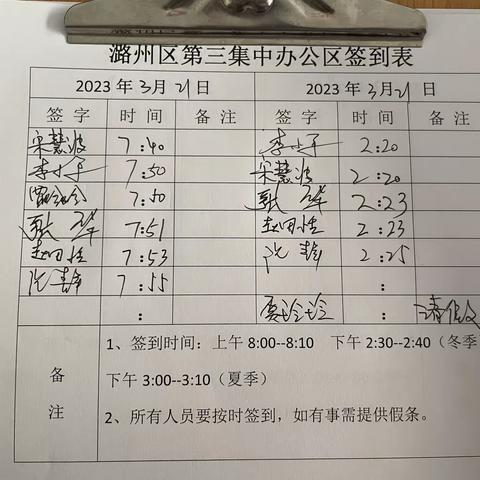 潞州区第三集中办公区签到表
2023 年 3月 21日 2023 年 3月 21日
签 字 时 间 备 注 签 字 时 间 备 注
宋慧波 7:40 李小平 2:20
李小平 7:50 宋慧波 2:20
7:50 2:23
7:51 2:23
7:53 2:25
7:55 :
: 夏玲玲 : 请假
备注
1、签到时间：上午 8:00--8:10 下午 2:30--2:40（冬季
下午 3:00--3:10（夏季）
2、所有人员要按时签到，如有事需提供假条。